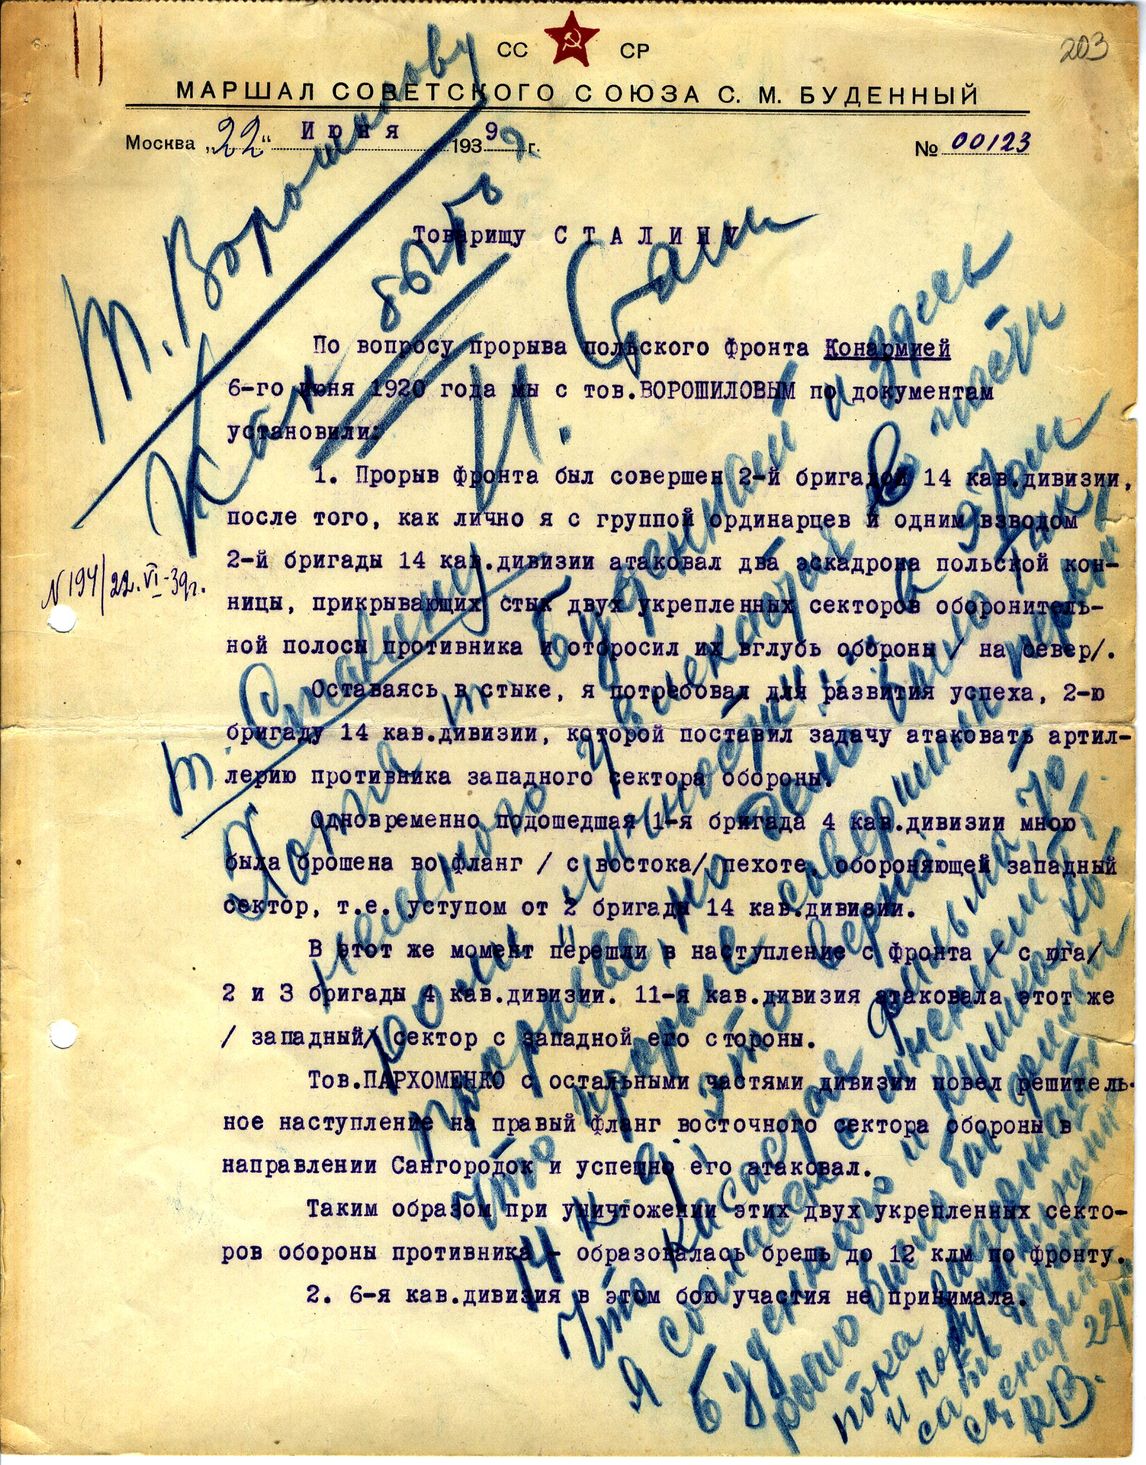 203
СС СР
МАРШАЛ СОВЕТСКОГО СОЮЗА С. М. БУДЕННЫЙ
Москва „22“ Июня 1939 г.
№ 00123
Товарищу СТАЛИНУ
По вопросу прорыва польского фронта Конармией
6-го июня 1920 года мы с тов.ВОРОШИЛОВЫМ по документам
установили:
1. Прорыв фронта был совершен 2-й бригадой 14 кав.дивизии,
после того, как лично я с группой ординарцев и одним взводом
2-й бригады 14 кав.дивизии атаковал два эскадрона польской кон-
ницы, прикрывающих стык двух укрепленных секторов оборонитель-
ной полосы противника и отбросил их вглубь обороны / на север/.
Оставаясь в стыке, я потребовал для развития успеха, 2-ю
бригаду 14 кав.дивизии, которой поставил задачу атаковать артил-
лерию противника западного сектора обороны.
Одновременно подошедшая 1-я бригада 4 кав.дивизии мною
была брошена во фланг / с востока/ пехоте, обороняющей западный
сектор, т.е. уступом от 2 бригады 14 кав.дивизии.
В этот же момент перешли в наступление с фронта / с юга/
2 и 3 бригады 4 кав.дивизии. 11-я кав.дивизия атаковала этот же
/ западный/ сектор с западной его стороны.
Тов.ПАРХОМЕНКО с остальными частями дивизии повел решитель-
ное наступление на правый фланг восточного сектора обороны в
направлении Сангородок и успешно его атаковал.
Таким образом при уничтожении этих двух укрепленных секто-
ров обороны противника - образовалась брешь до 12 клм по фронту.
2. 6-я кав.дивизия в этом бою участия не принимала.
т. Ворошилову
Как быть?
И. Сталин
N 194/22.VI-39г.
т. Сталину
Хотя т. Буденный и здесь
немного увлекается в части
роли личности в этом
прорыве, но дело было так,
что прорыв совершили первые
14 к.д., это верно.
Что касается фильма, то
я согласен с мнением
Буденного и
КВ.